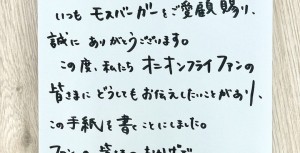 いつも モスバーガーをご愛顧 賜り、
誠に ありがとうございます。
この度、私たち オニオンフライ ファンの
皆さまに どうしても お伝えしたいことがあり、
この手紙を書くことにしました。